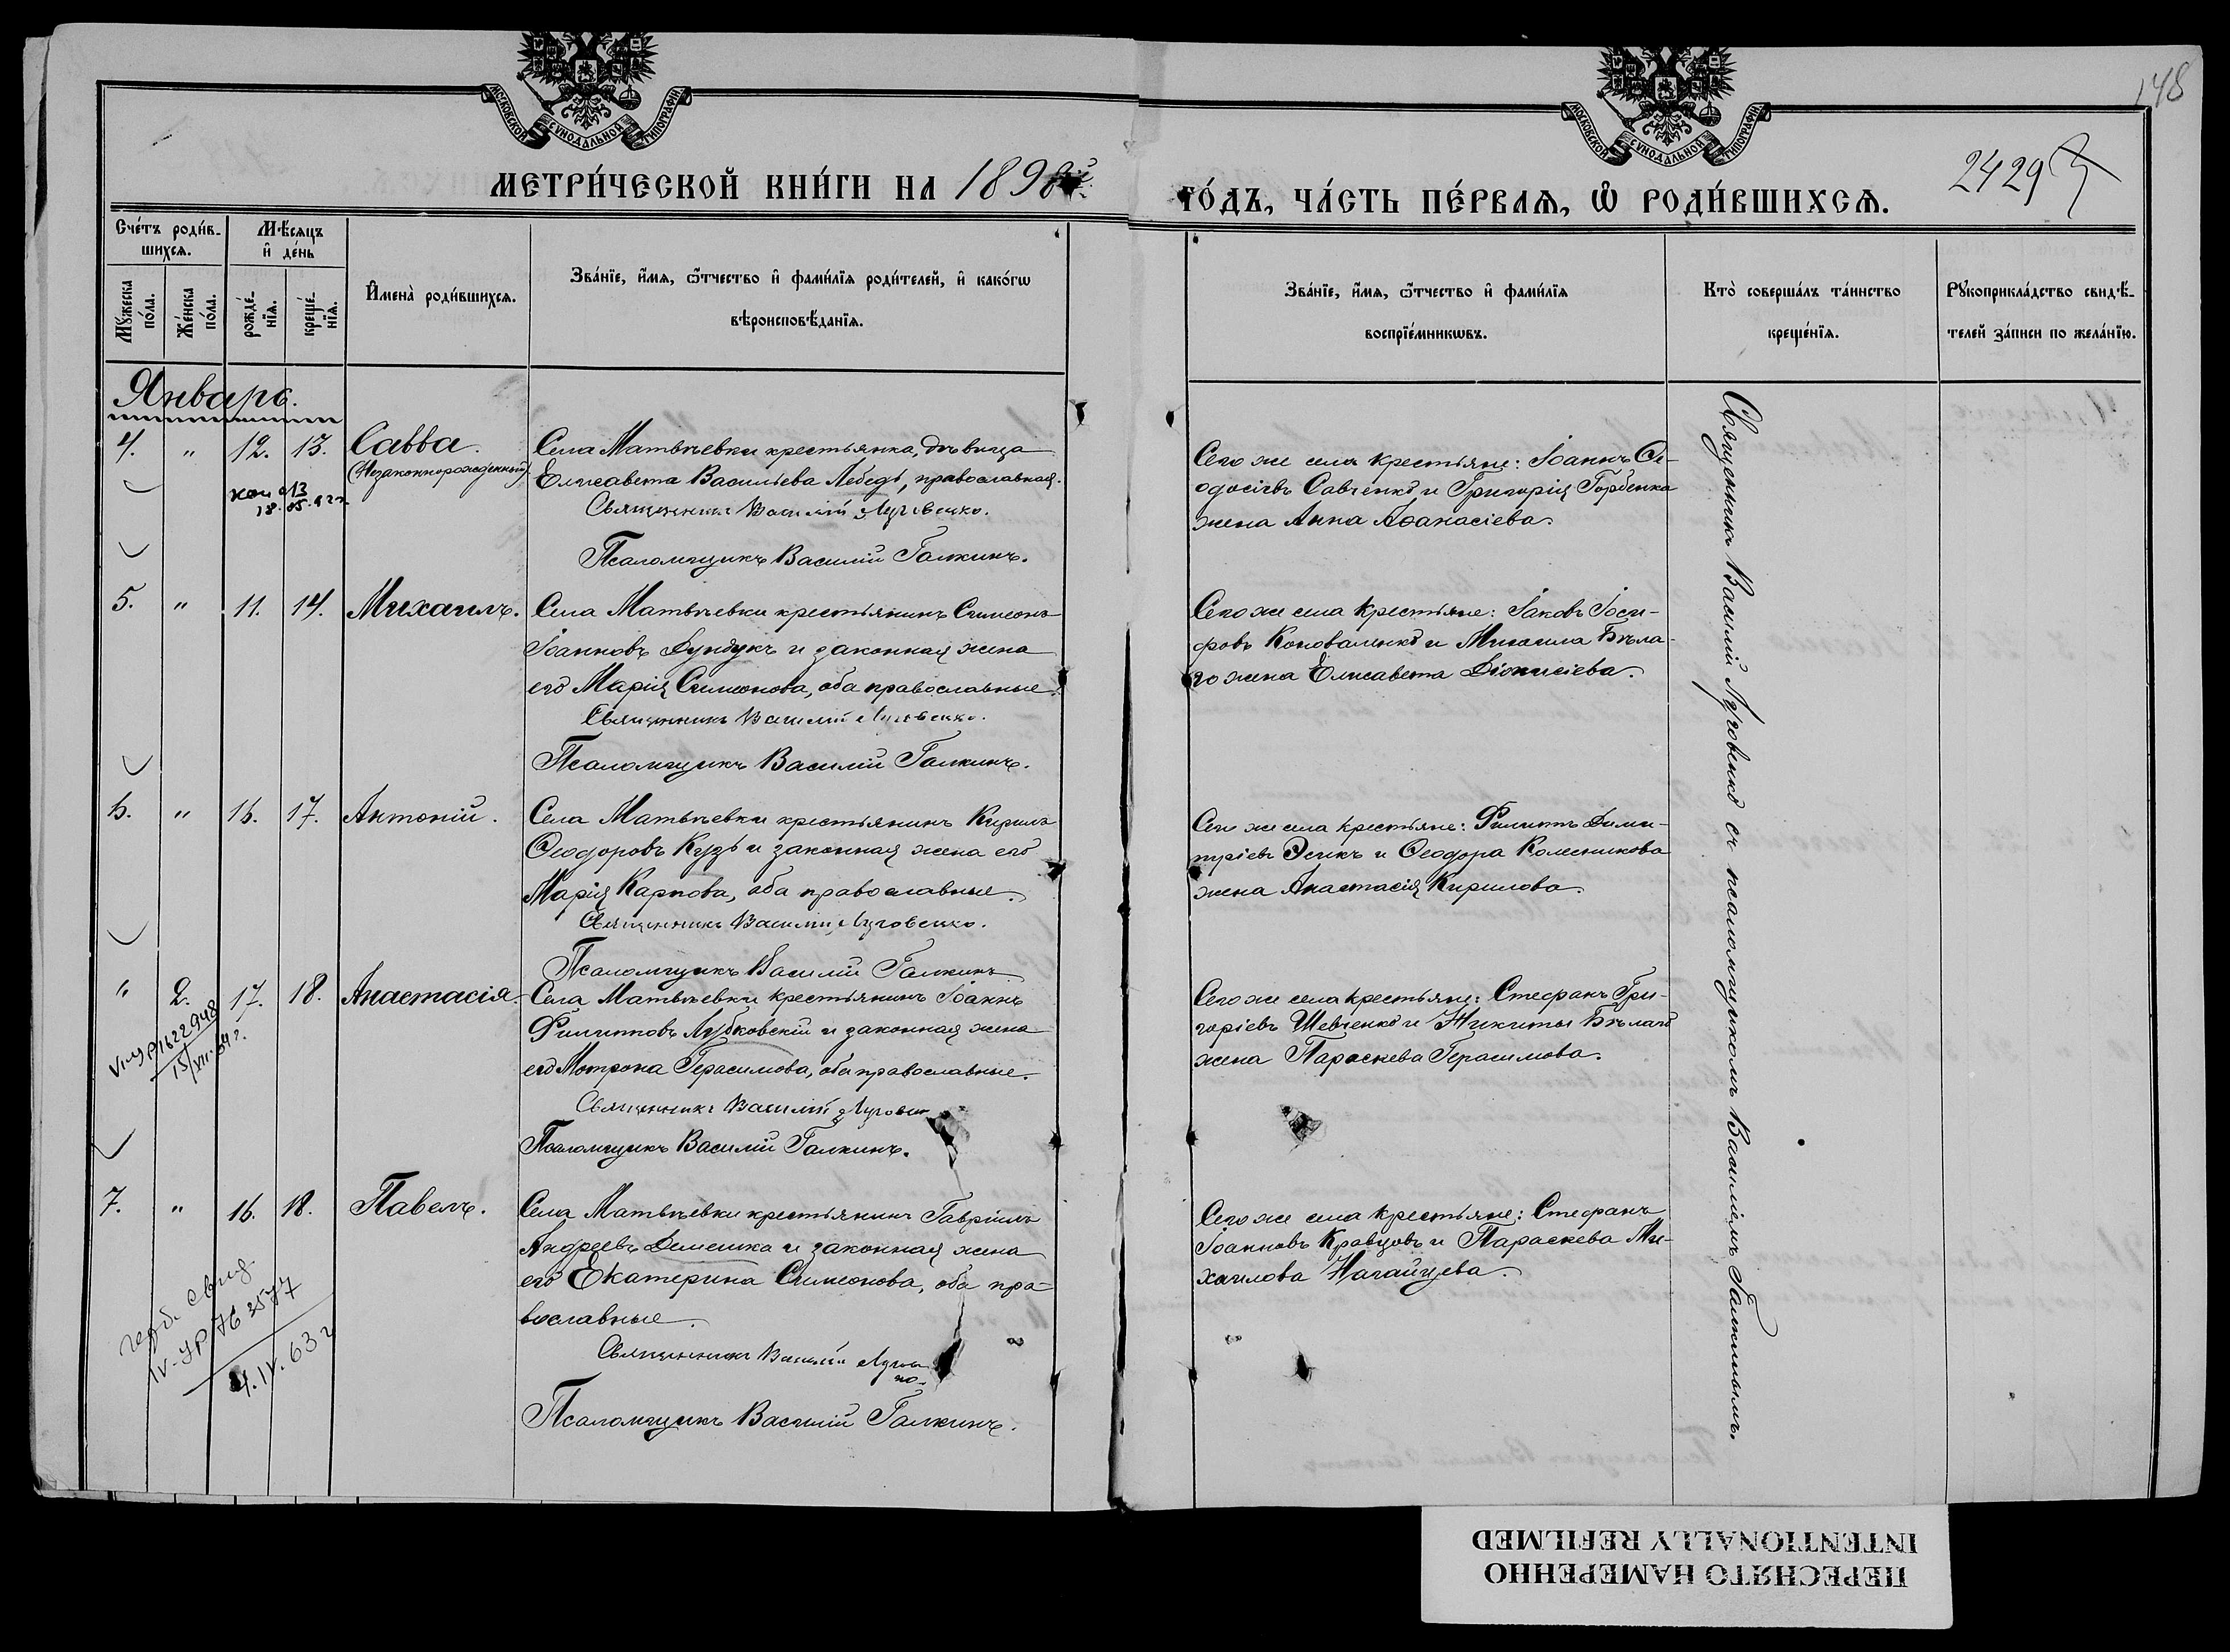 МОСКОВСКОЙ СѴНОДАЛЬНОЙ ТИПОГРАФІИ
МОСКОВСКОЙ СѴНОДАЛЬНОЙ ТИПОГРАФІИ
148
2429
МЕТРИ́ЧЕСКОЙ КНИ́ГИ НА 1898й
ГО́ДЪ, ЧА́СТЬ ПЕ́РВАѦ, Ѡ РОДИ́ВШИХСѦ.
Сче́тъ роди́в-
шихсѧ.
Мѣ́сѧцъ
и҆ де́нь
Мꙋ́жеска
по́ла.
Же́нска
по́ла.
рожде́-
нїѧ.
креще́-
нїѧ.
И҆мена̀ роди́вшихсѧ.
Зва́нїе, и҆́мѧ, ѻ҆́тчество и҆ фами́лїѧ роди́телей, и҆ како́гѡ
вѣроисповѣ́данїѧ.
Зва́нїе, и҆́мѧ, ѻ҆́тчество и҆ фами́лїѧ
воспрїе́мникѡвъ.
Кто̀ соверша́лъ та́инство
креще́нїѧ.
Рꙋкоприкла́дство свидѣ́-
телей за́писи по жела́нїю.
Январь.
4. " 12. 13. Савва.
(Незаконнорожденный)
Села Матвѣевки крестьянка, дѣвица
Елисавета Васильева Лебедь, православная.
Священникъ Василій Луговенко.
Псаломщикъ Василій Галкинъ.
Сего же села крестьяне: Іоаннъ Ѳе-
одосіевъ Савченко и Григорія Горбенка
жена Анна Аѳанасіева.
5. " 11. 14. Михаилъ.
Села Матвѣевки крестьянинъ Симеонъ
Іоанновъ Дундукъ и законная жена
его Марія Симеонова, оба православные.
Священникъ Василій Луговенко.
Псаломщикъ Василій Галкинъ.
Сего же села крестьяне: Іаковъ Іоси-
фовъ Коноваленко и Михаила Бѣла-
го жена Елисавета Діонисіева.
6. " 16. 17. Антоній.
Села Матвѣевки крестьянинъ Кирилъ
Ѳеодоровъ Кузь и законная жена его
Марія Карпова, оба православные.
Священникъ Василій Луговенко.
Псаломщикъ Василій Галкинъ
Сего же села крестьяне: Филиппъ Дими-
тріевъ Эсикъ и Ѳеодора Колесникова
жена Анастасія Кирилова.
" 2. 17. 18. Анастасія.
Села Матвѣевки крестьянинъ Іоаннъ
Филипповъ Лубковскій и законная жена
его Мотрона Герасимова, оба православные.
Священникъ Василій Луговен
Псаломщикъ Василій Галкинъ.
Сего же села крестьяне: Стефанъ Гри-
горіевъ Шевченко и Никиты Бѣлаго
жена Параскева Герасимова.
7. " 16. 18. Павелъ.
IV-УР 762577
4.IV.63 г
Села Матвѣевки крестьянинъ Гавріилъ
Андреевъ Демешка и законная жена
его Екатерина Симеонова, оба пра-
вославные.
Священникъ Василій Лугов
ко.
Псаломщикъ Василій Галкинъ.
Сего же села крестьяне: Стефанъ
Іоанновъ Кравцовъ и Параскева Ми-
хаилова Нагайцева.
Священникъ Василій Луговенко съ псаломщикомъ Василіемъ Галкинымъ.
ПЕРЕСНЯТО НАМЕРЕННО
INTENTIONALLY REFILMED